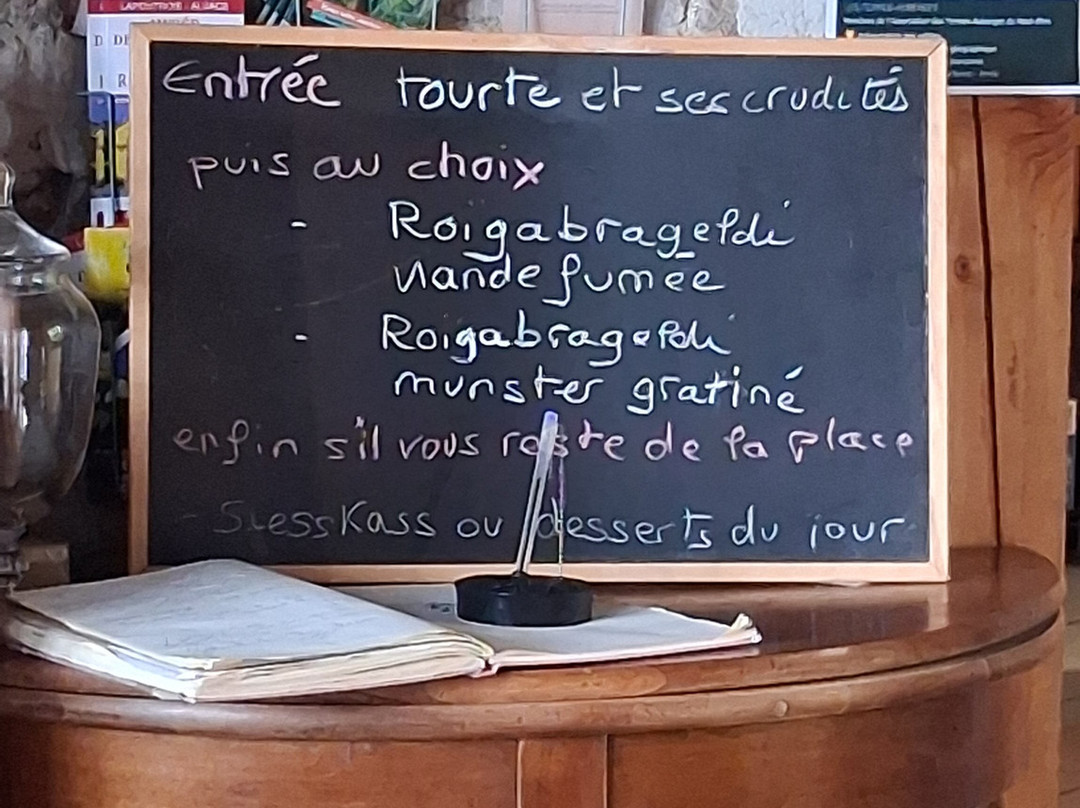 Entrée tourte et ses crudités
puis au choix
- Roigabrageldi
viande fumée
- Roigabrageldi
munster gratiné
enfin s'il vous reste de la place
- SiessKass ou desserts du jour